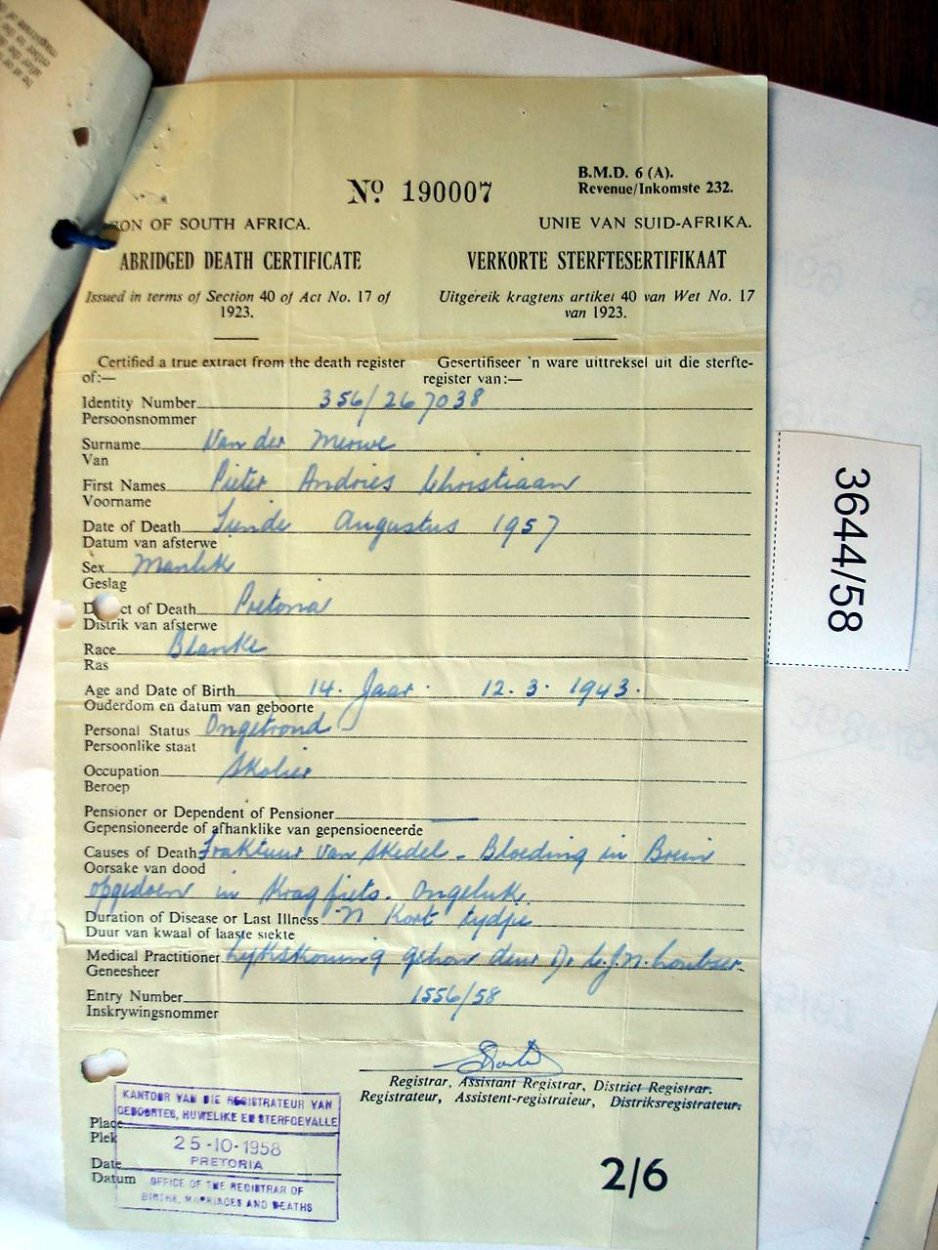 No 190007
B.M.D. 6 (A).
Revenue/Inkomste 232.
ON OF SOUTH AFRICA.
UNIE VAN SUID-AFRIKA.
ABRIDGED DEATH CERTIFICATE
VERKORTE STERFTESERTIFIKAAT
Issued in terms of Section 40 of Act No. 17 of
1923.
Uitgereik kragtens artikel 40 van Wet No. 17
van 1923.
Certified a true extract from the death register
of:—
Gesertifiseer 'n ware uittreksel uit die sterfte-
register van:—
Identity Number 356/267038
Persoonsnommer
Surname Van der Merwe
Van
First Names Pieter Andries Christiaan
Voorname
Date of Death Augustus 1957
Datum van afsterwe
Sex Manlik
Geslag
D ct of Death Pretoria
Distrik van afsterwe
Race Blanke
Ras
Age and Date of Birth 14. Jaar. 12.3.1943.
Ouderdom en datum van geboorte
Personal Status Ongetroud
Persoonlike staat
Occupation Skolier
Beroep
Pensioner or Dependent of Pensioner —
Gepensioneerde of afhanklike van gepensioeneerde
Causes of Death Fraktuur van Skedel - Bloeding in Brein
Oorsake van dood
opgedoen in Kragfiets. Ongeluk.
Duration of Disease or Last Illness 'n Kort tydjie
Duur van kwaal of laaste siekte
Medical Practitioner Lykskouing gehou deur Dr
Geneesheer
Entry Number 1556/58
Inskrywingsnommer
Registrar, Assistant Registrar, District Registrar.
Registrateur, Assistent-registrateur, Distriksregistrateur.
KANTOOR VAN DIE REGISTRATEUR VAN
GEBOORTES, HUWELIKE EN STERFGEVALLE
Place
Plek
25-10-1958
PRETORIA
Date
Datum
OFFICE OF THE REGISTRAR OF
BIRTHS, MARRIAGES AND DEATHS
2/6
3644/58